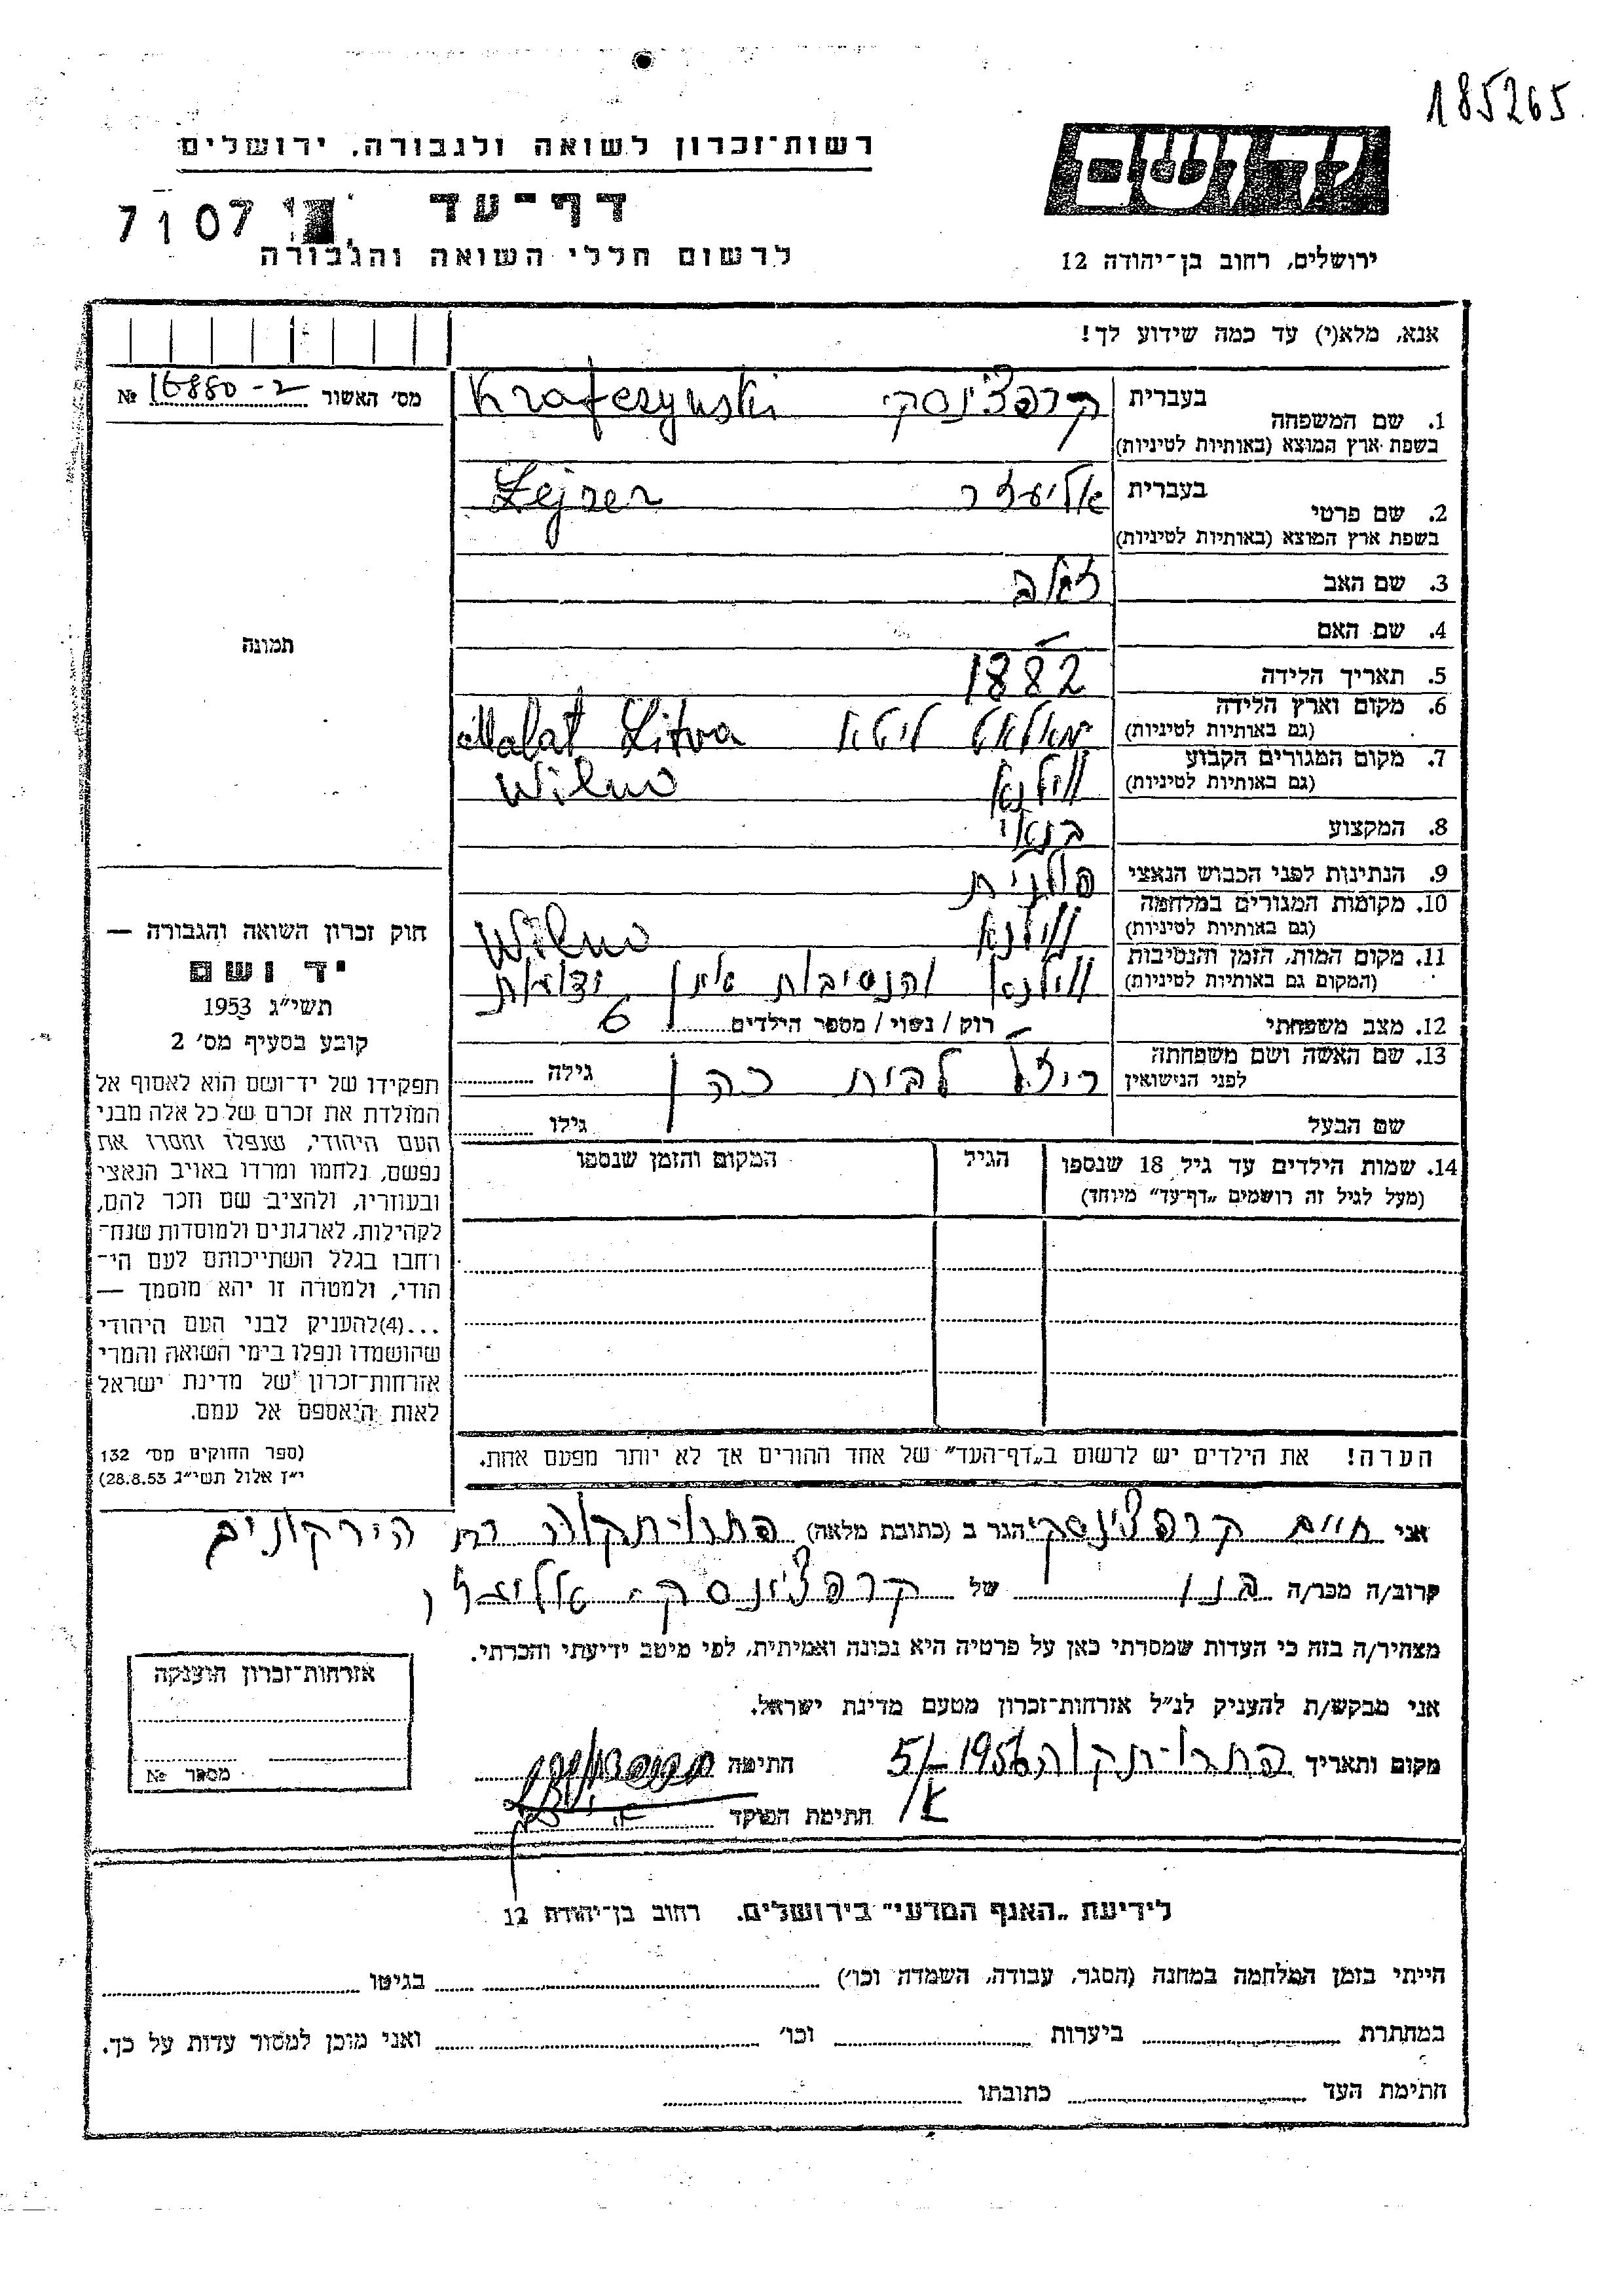 185265
רשות־זכרון לשואה ולגבורה, ירושלים
יד ושם
דף־עד
7107
לרשום חללי השואה והגבורה
ירושלים, רחוב בן־יהודה 12
אנא, מלא(י) עד כמה שידוע לך!
מס׳ האשור № 16880-2
1. שם המשפחה בעברית קרפצ'ינסקי Krafczynski
בשפת ארץ המוצא (באותיות לטיניות)
2. שם פרטי בעברית אליעזר Lejzer
בשפת ארץ המוצא (באותיות לטיניות)
3. שם האב זאב
4. שם האם —
תמונה
5. תאריך הלידה 1882
6. מקום וארץ הלידה מאלאט ליטא Malat Litwa
(גם באותיות לטיניות)
7. מקום המגורים הקבוע ווילנא Wilno
(גם באותיות לטיניות)
8. המקצוע בנאי
9. הנתינות לפני הכבוש הנאצי פולנית
10. מקומות המגורים במלחמה ווילנא Wilno
(גם באותיות לטיניות)
11. מקום המות, הזמן והנסיבות ווילנא והנסיבות אינן ידועות
(המקום גם באותיות לטיניות)
12. מצב משפחתי רוק / נשוי / מספר הילדים 6
13. שם האשה ושם משפחתה לפני הנישואין רייזל לבית כהן גילה
שם הבעל גילו
14. שמות הילדים עד גיל 18 שנספו הגיל המקום והזמן שנספו
(מעל לגיל זה רושמים „דף־עד” מיוחד)
חוק זכרון השואה והגבורה —
יד ושם
תשי״ג 1953
קובע בסעיף מס׳ 2
תפקידו של יד־ושם הוא לאסוף אל
המולדת את זכרם של כל אלה מבני
העם היהודי, שנפלו ומסרו את
נפשם, נלחמו ומרדו באויב הנאצי
ובעוזריו, ולהציב שם וזכר להם,
לקהילות, לארגונים ולמוסדות שנח־
רחבו בגלל השתייכותם לעם הי־
הודי, ולמטרה זו יהא מוסמך —
...(4)להעניק לבני העם היהודי
שהושמדו ונפלו בימי השואה והמרי
אזרחות־זכרון של מדינת ישראל
לאות היאספם אל עמם.
(ספר החוקים מס׳ 132
י״ז אלול תשי״ג 28.8.53)
הערה! את הילדים יש לרשום ב„דף־העד” של אחד ההורים אך לא יותר מפעם אחת.
אני חיים קרפצ'ינסקי הגר ב (כתובת מלאה) פתח־תקוה רח הירקונים
קרוב/ה מכר/ה בנו של קרפצ'ינסקי אליעזר
מצהיר/ה בזה כי העדות שמסרתי כאן על פרטיה היא נכונה ואמיתית, לפי מיטב ידיעתי והכרתי.
אני מבקש/ת להעניק לנ״ל אזרחות־זכרון מטעם מדינת ישראל.
מקום ותאריך פתח־תקוה 1956 חתימה
חתימת הפוקד
אזרחות־זכרון הוענקה
מספר №
לידיעת „האגף המדעי” בירושלים, רחוב בן־יהודה 12
הייתי בזמן המלחמה במחנה (הסגר, עבודה, השמדה וכו׳) בגיטו
במחתרת ביערות וכו׳ ואני מוכן למסור עדות על כך.
חתימת העד כתובתו